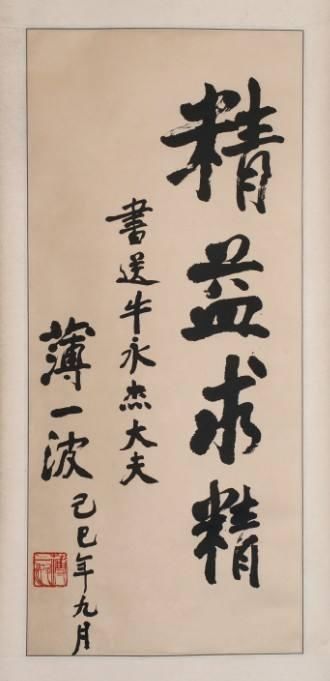 精益求精
書送牛永杰大夫
薄一波
己巳年九月